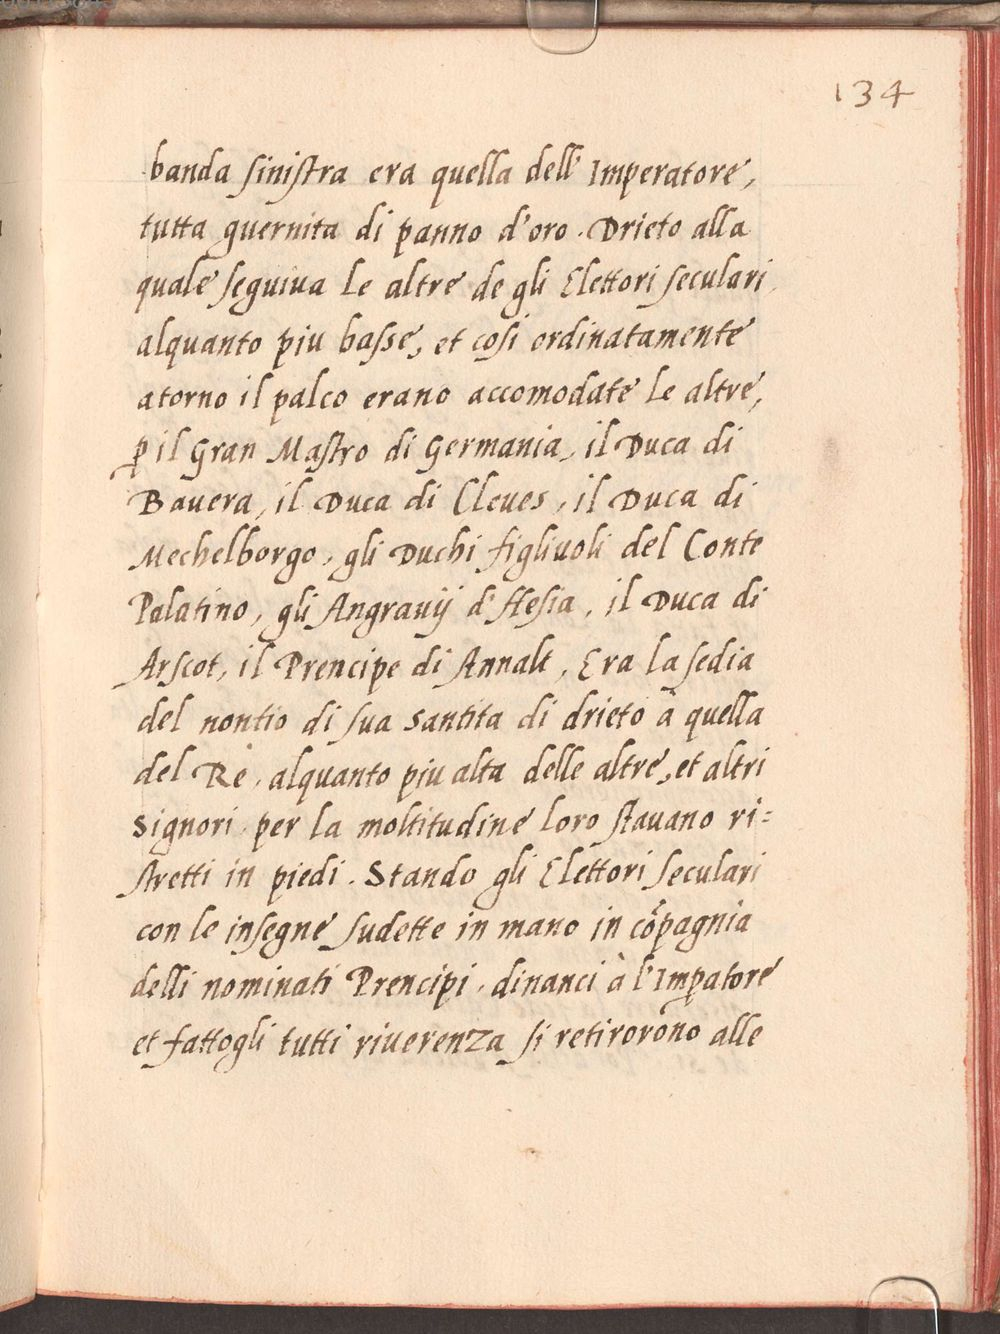 134
banda sinistra era quella dell' Imperatore,
tutta guernita di panno d'oro. Drieto alla
quale seguiua le altre de gli Elettori seculari,
alquanto piu basse, et cosi ordinatamente
atorno il palco erano accomodate le altre,
p̱ il Gran Mastro di Germania, il Duca di
Bauera, il Duca di Cleues, il Duca di
Mechelborgo, gli Duchi figliuoli del Conte
Palatino, gli Angrauij d'Hesia, il Duca di
Arscot, il Prencipe di Annalt, Era la sedia
del nontio di sua santita di drieto à quella
del Rè, alquanto piu alta delle altre, et altri
Signori, per la moltitudine loro stauano ri=
stretti in piedi. Stando gli Elettori seculari
con le insegne sudette in mano in cõpagnia
delli nominati Prencipi, dinanci à l'Imp̱atore
et fattogli tutti riuerenza si retirorono alle